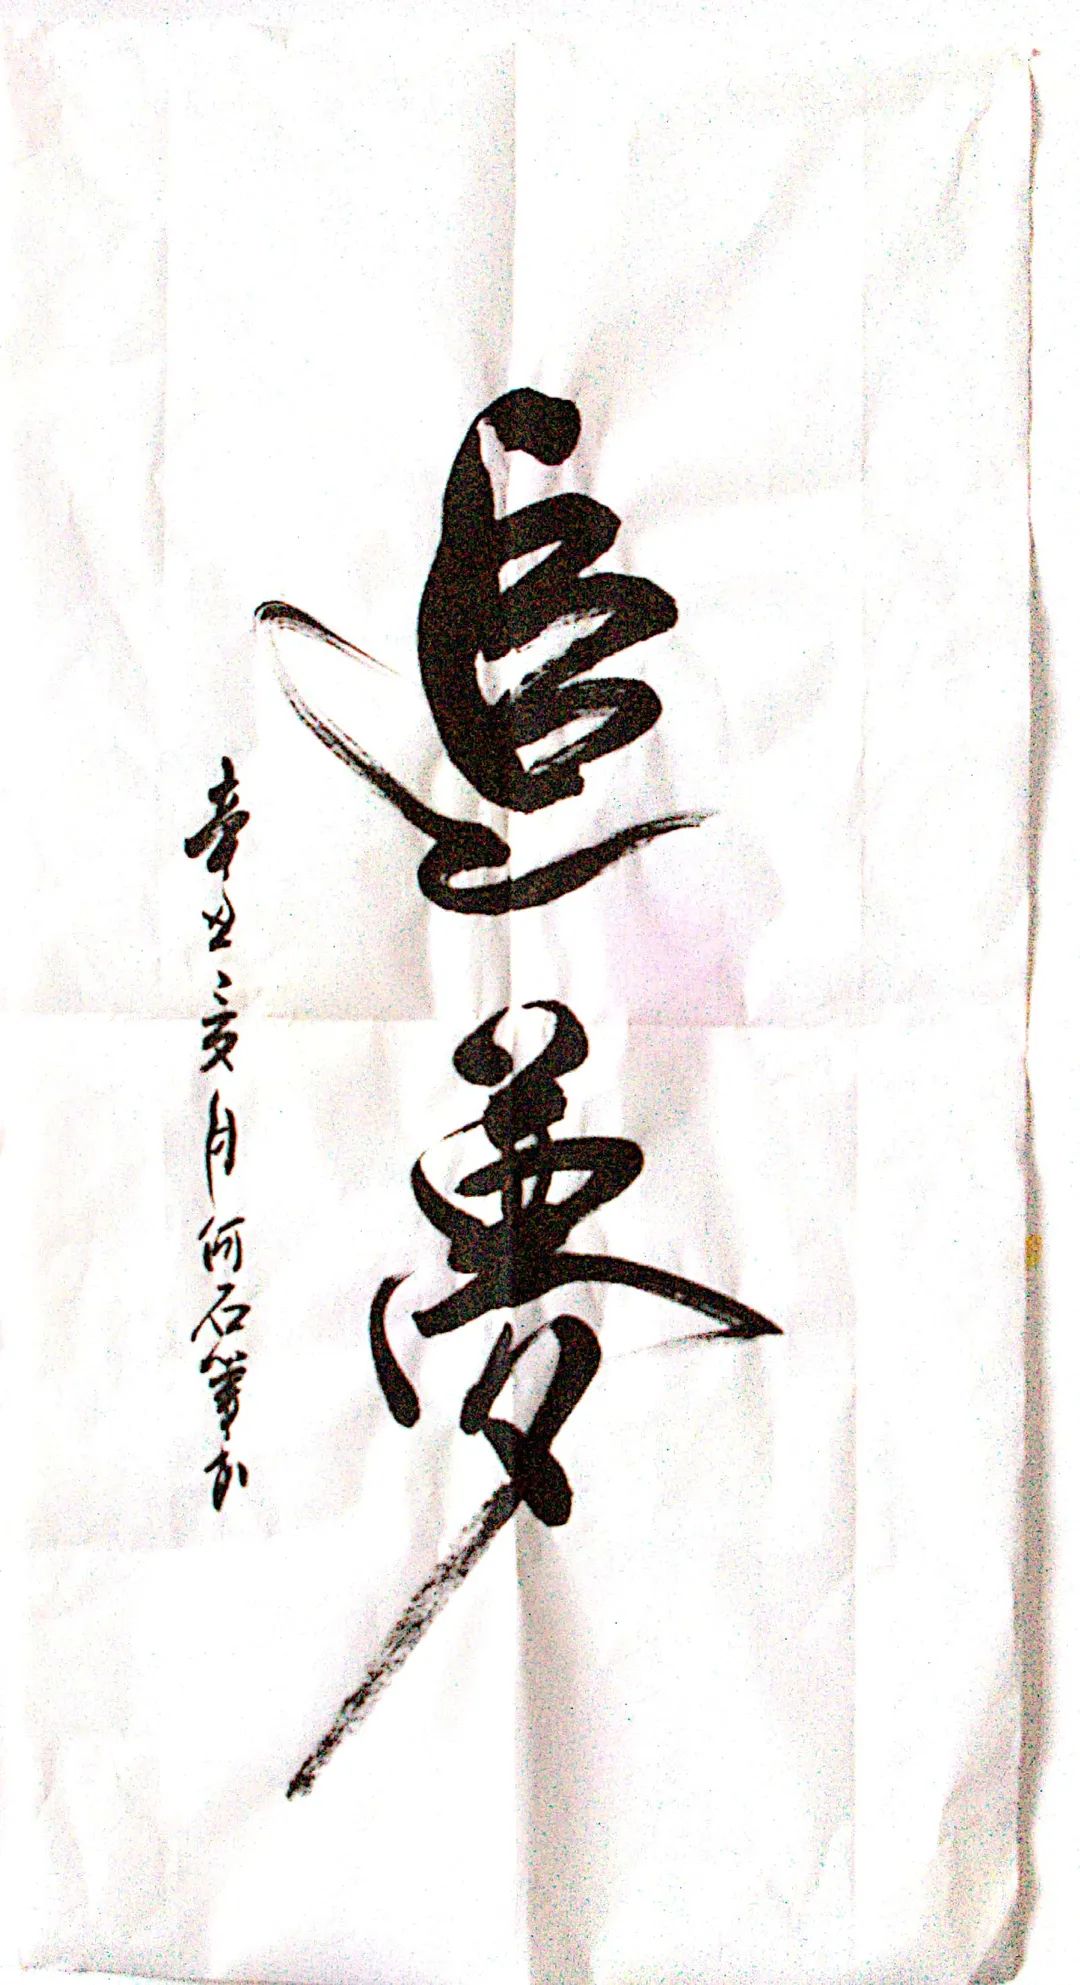 追夢
辛丑夏月何石笔书